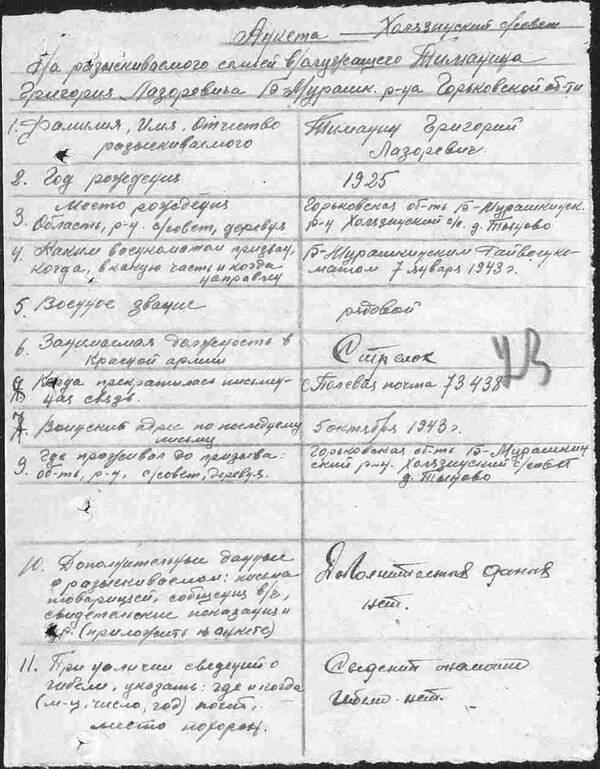 Анкета — Холязинский с/совет
На разыскиваемого семьей в/служащего Тиманина
Григория Лазоревича Б-Мурашк. р-на Горьковской об-ти
1. Фамилия, Имя, Отчество
разыскиваемого
Тиманин Григорий
Лазоревич
2. Год рождения
1925
Место рождения
3. Область, р-н. с/совет, деревня
Горьковская об-ть Б-Мурашкинск.
р-н Холязинский с/с. д.
4. Каким военкоматом призван,
когда, в какую часть и когда
направлен
Б-Мурашкинским Райвоенко-
матом 7 января 1943 г.
5. Военное звание
рядовой
6. Занимаемая должность в
Красной армии
Стрелок
43
8 Когда прекратилась письмен-
ная связь.
Полевая почта 73438
7 адрес по последнему
письму
5 октября 1943 г.
9. Где проживал до призыва:
об-ть, р-н, с/совет, деревня.
Горьковская об-ть Б-Мурашкин
ский р-н. Холязинский с/совет
д.
10. Дополнительные данные
о разыскиваемом: письма
товарищей, сообщения в/ч,
свидетельские показания и
др. (приложить к анкете)
нет.
11. При наличии сведений о
гибели, указать: где и когда
(м-ц, число, год) погиб,
место похорон.
нет.